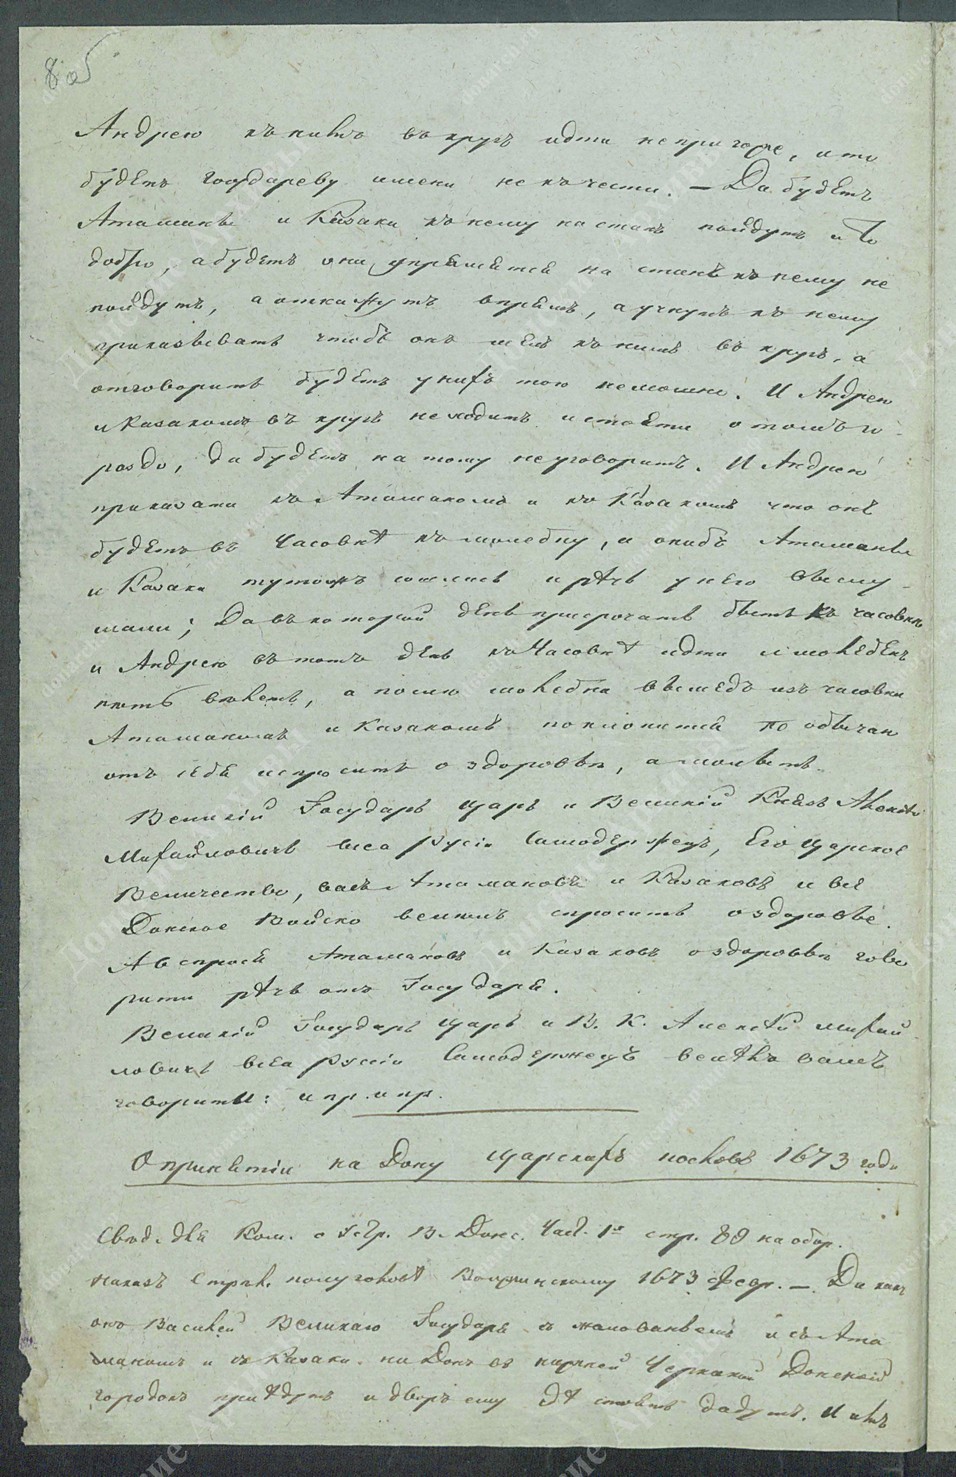 8 об
Андрею къ нимъ въ кругъ идти непригоже, и то
будетъ Государеву имени не къ чести. — Да будетъ
Атаманы и Казаки къ нему на станъ пойдутъ и то
добро, а будетъ они упрямятся на станъ къ нему не
пойдутъ, а откажутъ впрямь, а учнутъ къ нему
приказывать чтобъ онъ шелъ къ нимъ въ кругъ, а
отговорить будетъ у нихъ тою немошно. И Андрею
къ Казакомъ въ кругъ неходить и стояти о томъ го-
раздо, да будетъ на тому неуговорить. И Андрею
приказати къ Атаманомъ и къ Казакомъ что онъ
будетъ въ Часовнѣ къ молебну, и они бъ Атаманы
и Казаки тутожъ сошлись и рѣчь у него выслу-
шали; Да въ которой день присрочатъ быть къ часовнѣ
и Андрею въ тотъ день къ Часовнѣ идти и молебенъ
пѣть велѣть, а послѣ молебна вышедъ изъ часовни
Атаманомъ и Казакомъ поклонится по обычаю
отъ себя и спросить о здоровьѣ, а молвить.
Великій Государь Царь и Великій Князь Алексѣй
Михайловичь всеа Русіи Самодержецъ, Его Царское
Величество, васъ Атамановъ и Казаковъ и всё
Донское Войско велѣлъ спросить о здоровьѣ.
А вспрося Атамановъ и Казаковъ о здоровьѣ гово
рити рѣчь отъ Государя.
Великій Государь Царь и В. К. Алексѣй Михай
ловичь всеа Русіи Самодержецъ велѣлъ вамъ
говорити: и пр. и пр.
О принятіи на Дону Царскихъ пословъ 1673 года
Свѣд. для Ком. о Устр. В. Донс. Част. 1я стр. 88 на обор.
Наказъ Стрѣл. полуголовѣ Волжинскому 1673 Февр. — Да какъ
онъ Василей Великаго Государя съ жалованьемъ и съ Ата
маномъ и съ Казаки на Донъ въ нижней Черкаской Донской
городокъ приѣдетъ и дворъ ему гдѣ стоять дадутъ. И имъ